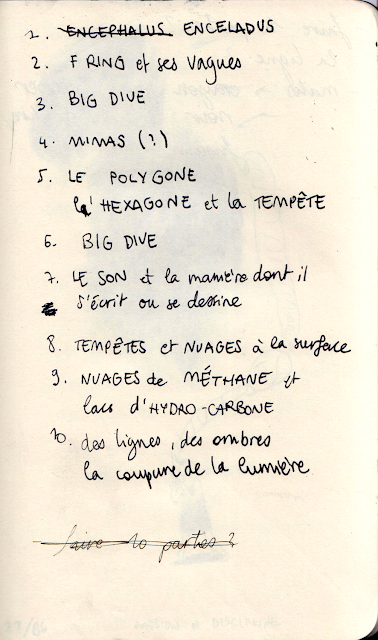 1. ENCEPHALUS ENCELADUS
2. F RING et ses vagues
3. BIG DIVE
4. MIMAS (?)
5. LE POLYGONE
l'HEXAGONE et la TEMPÊTE
6. BIG DIVE
7. LE SON et la manière dont il
s'écrit ou se dessine
8. TEMPÊTES et NUAGES à la surface
9. NUAGES de MÉTHANE et
lacs d'HYDRO-CARBONE
10. des lignes, des ombres
la coupure de la lumière
faire 10 parties ?